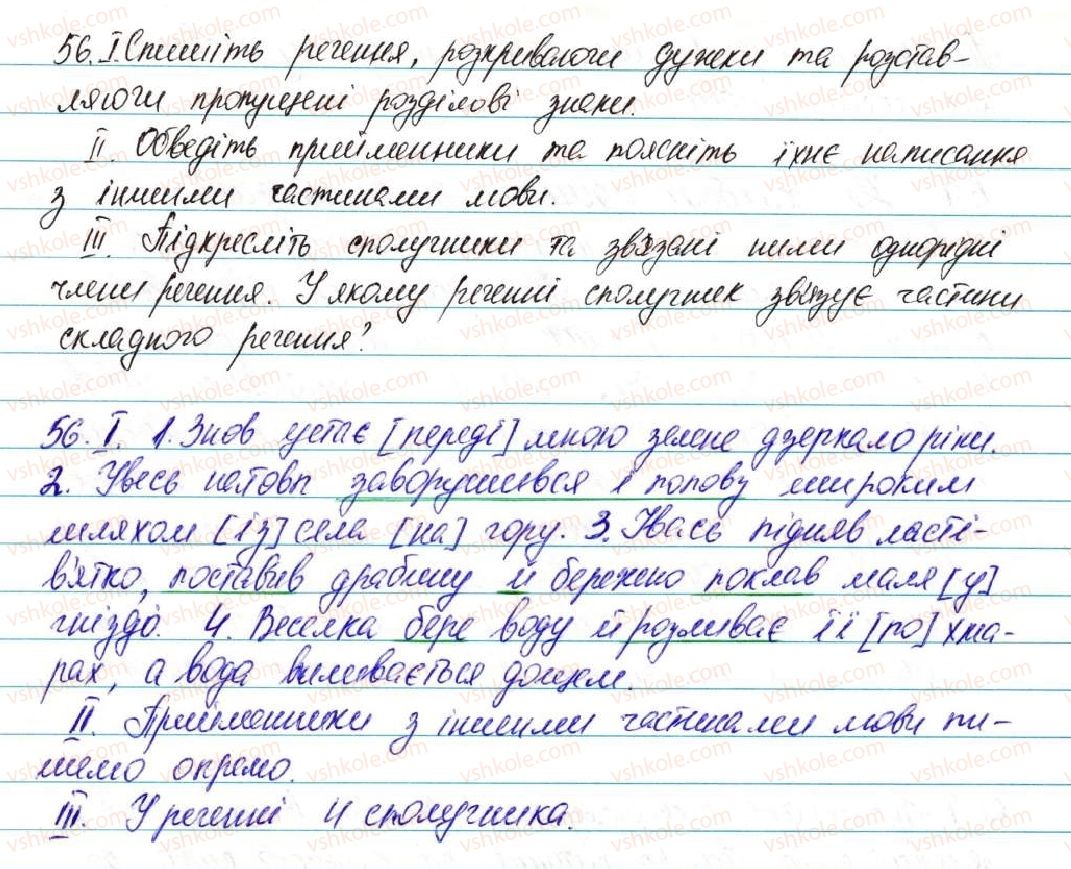 56. I. Спишіть речення, розкриваючи дужки та розстав-
ляючи пропущені розділові знаки.
II. Обведіть прийменники та поясніть їхнє написання
з іншими частинами мови.
III. Підкресліть сполучники та зв'язані ними однорідні
члени речення. У якому реченні сполучник зв'язує частини
складного речення?
56. I. 1. Знов устає [переді] мною зелене дзеркало ріки.
2. Увесь натовп заворушився і поповз широким
шляхом [із] села [на] гору. 3. Івась підняв ласті-
в'ятко, поставив драбину й бережно поклав маля [у]
гніздо. 4. Веселка бере воду й розливає її [по] хма-
рах, а вода виливається дощем.
II. Прийменники з іншими частинами мови пи-
шемо окремо.
III. У реченні 4 сполучника.